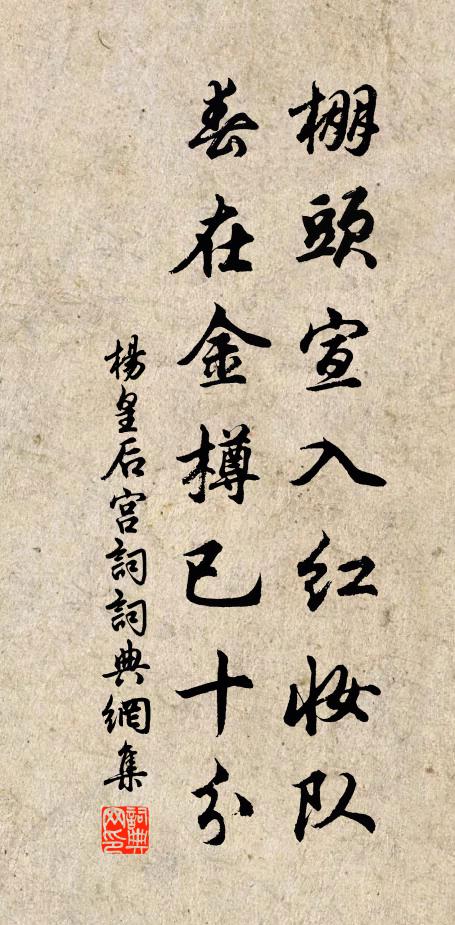 棚頭宣入紅妝队
春在金樽已十分
楊皇后宫詞詞典網集
詞典网印